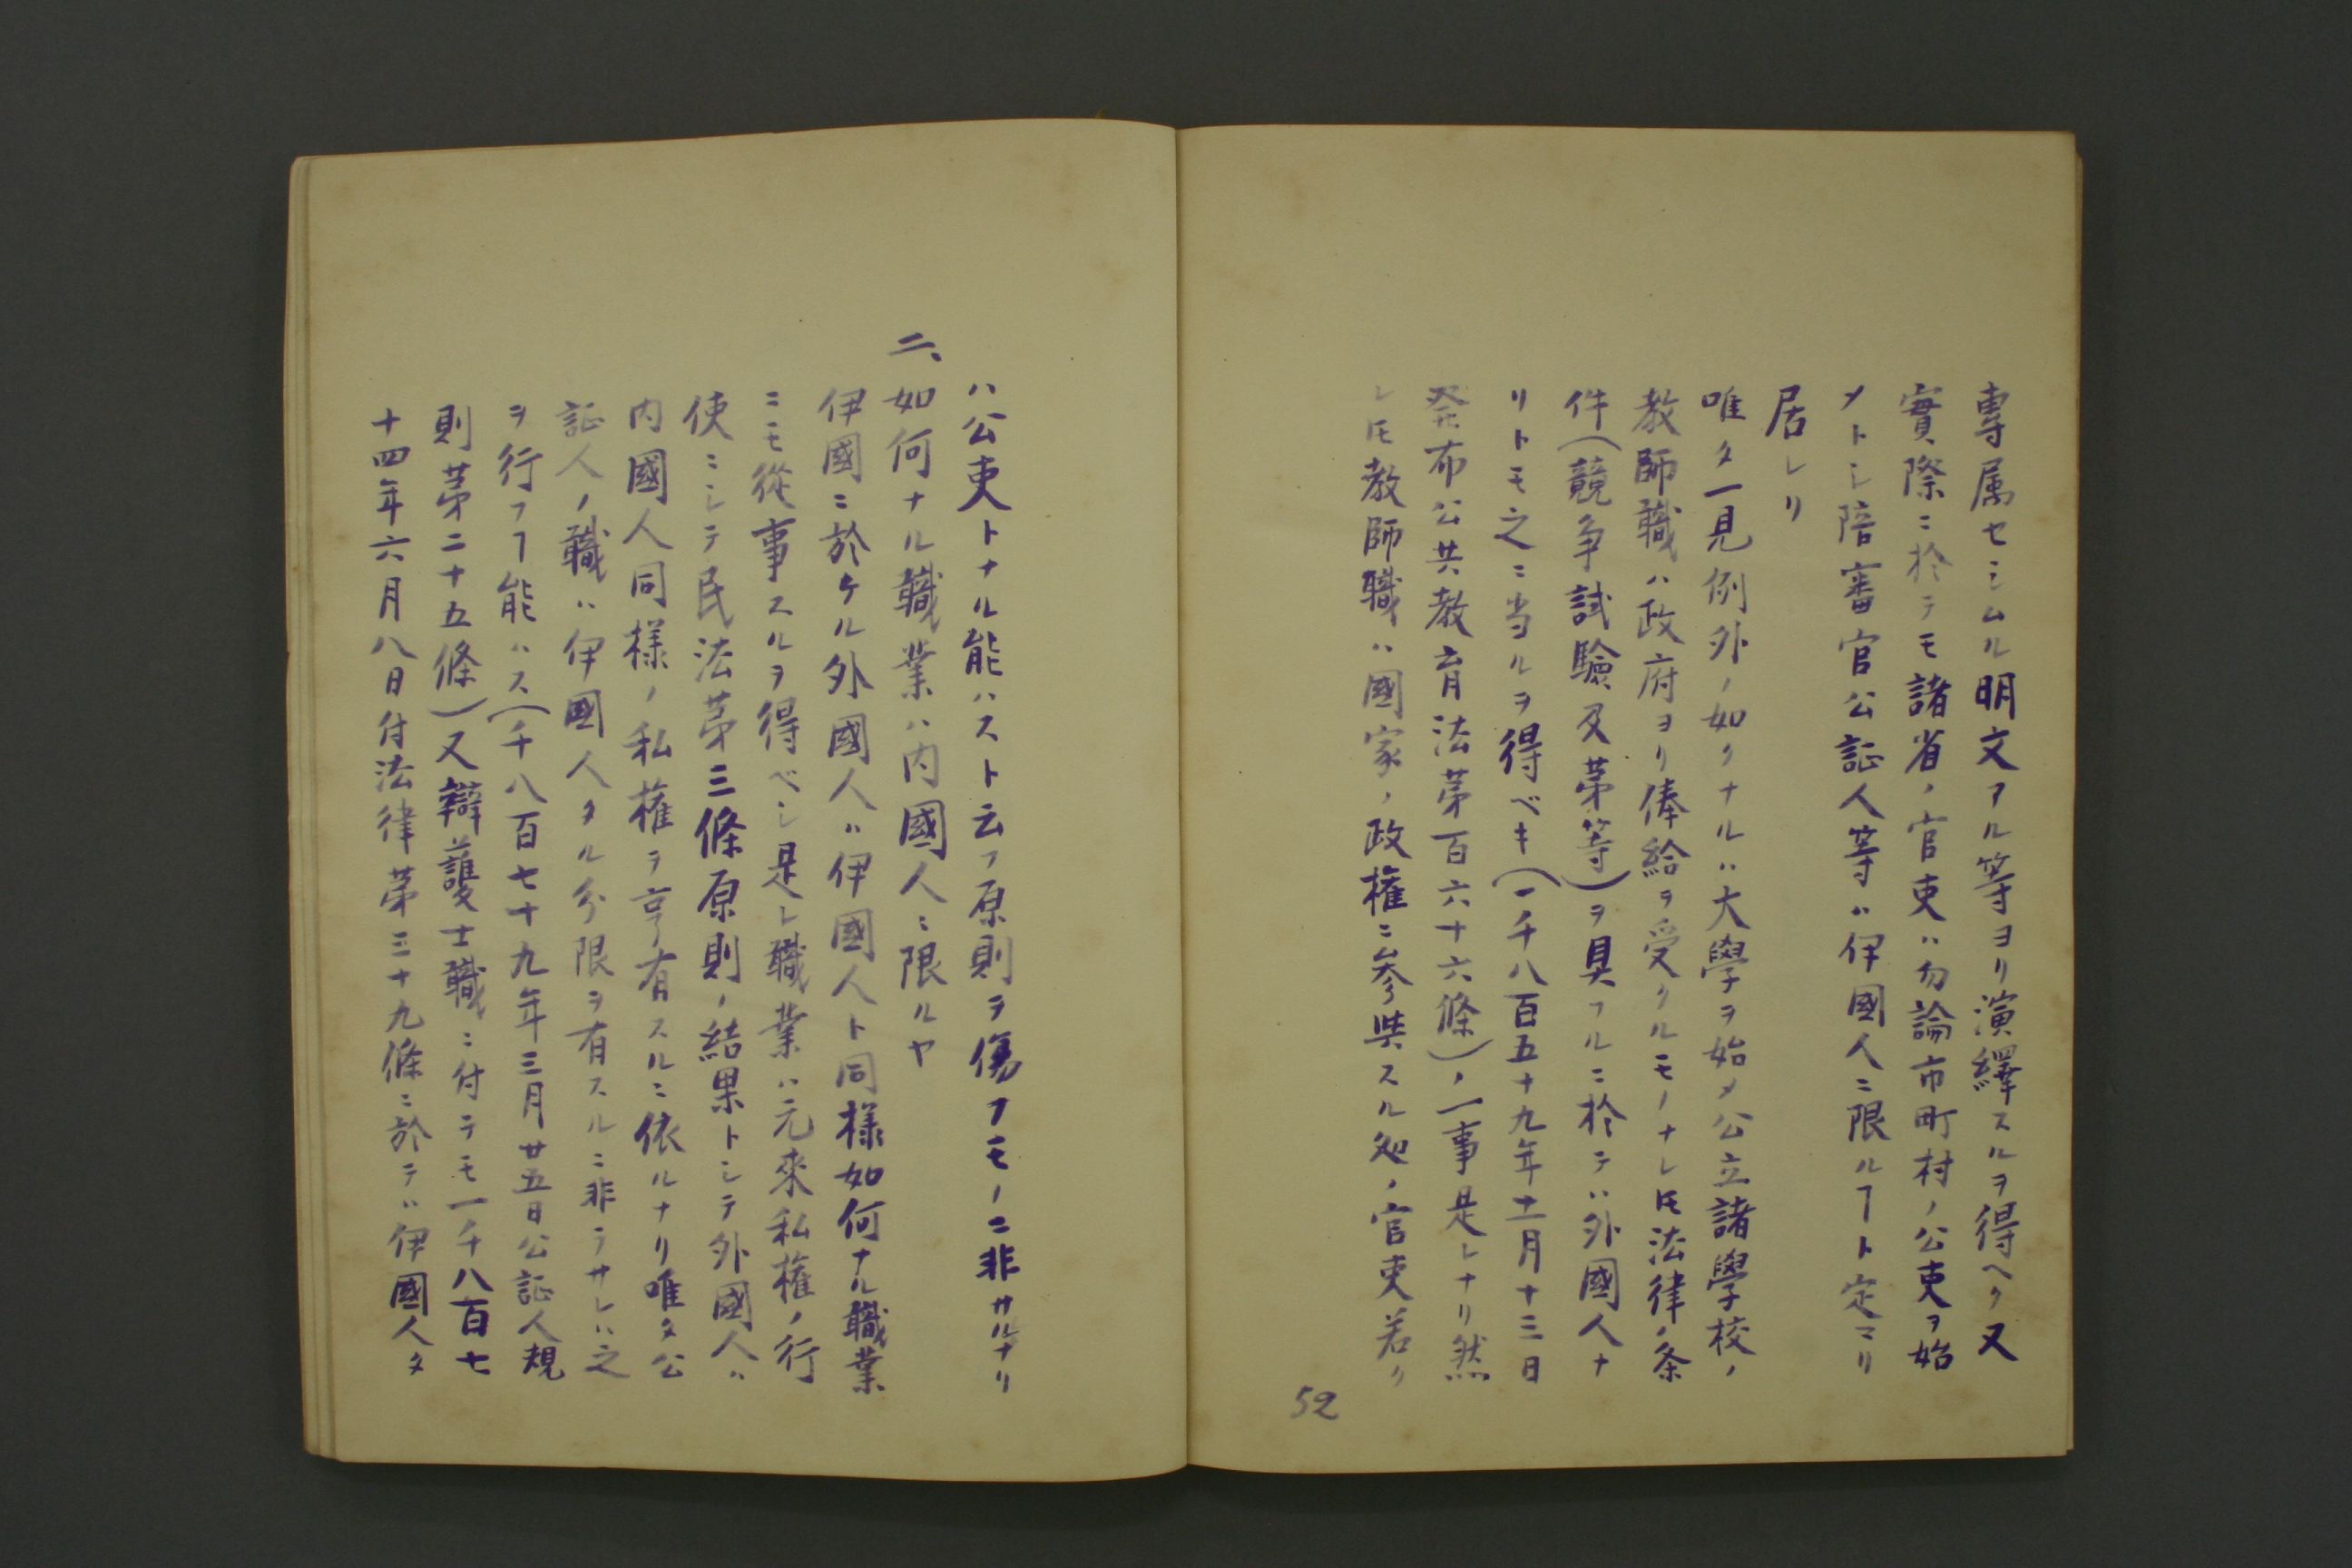 專属セシムル明文アル等ヨリ演繹スルヲ得ヘク又
實際ニ於テモ諸省ノ官吏ハ勿論市町村ノ公吏ヲ始
メトシ陪審官公証人等ハ伊國人ニ限ルヿト定マリ
居レリ
唯タ一見例外ノ如クナルハ大學ヲ始メ公立諸學校ノ
教師職ハ政府ヨリ俸給ヲ受クルモノナレ𪜈法律ノ条
件(競争試驗及第等)ヲ具フルニ於テハ外國人ナ
リトモ之ニ当ルヲ得ベキ(一千八百五十九年十一月十三日
発布公共教育法第百六十六條)ノ一事是レナリ然
レ𪜈教師職ハ國家ノ政権ニ参與スル処ノ官吏若ク
52
ハ公吏トナル能ハスト云フ原則ヲ傷フモノニ非サルナリ
二、如何ナル職業ハ内國人ニ限ルヤ
伊國ニ於ケル外國人ハ伊國人ト同様如何ナル職業
ニモ從事スルヲ得ベシ是レ職業ハ元來私権ノ行
使ニシテ民法第三條原則ノ結果トシテ外國人ハ
内國人同様ノ私権ヲ享有スルニ依ルナリ唯タ公
証人ノ職ハ伊國人タル分限ヲ有スルニ非ラサレハ之
ヲ行フヿ能ハス(千八百七十九年三月廿五日公証人規
則第二十五條)又辯護士職ニ付テモ一千八百七
十四年六月八日付法律第三十九條ニ於テハ伊國人タ